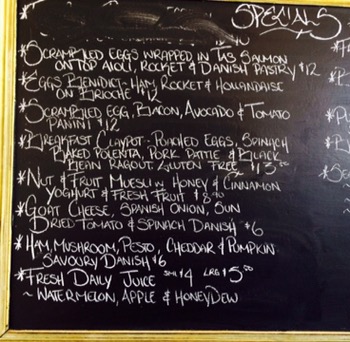 SPECIALS
*SCRAMBLED EGGS WRAPPED IN TAS SALMON
ON TOP AIOLI, ROCKET & DANISH PASTRY $12
*EGGS BENIDICT~HAM, ROCKET & HOLLANDAISE
ON BRIOCHE $12
*SCRAMBLED EGG, BACON, AVOCADO & TOMATO
PANINI $12
*BREAKFAST CLAYPOT~POACHED EGGS, SPINACH
BAKED POLENTA, PORK PATTIE & BLACK
BEAN RAGOUT. GLUTEN FREE $13.00
*NUT & FRUIT MUESLI W HONEY & CINNAMON
YOGHURT & FRESH FRUIT $8.90
*GOAT CHEESE, SPANISH ONION, SUN
DRIED TOMATO & SPINACH DANISH $6
*HAM, MUSHROOM, PESTO, CHEDDAR & PUMPKIN
SAVOURY DANISH $6
*FRESH DAILY JUICE SML $4 LRG $5.00
~WATERMELON, APPLE & HONEYDEW